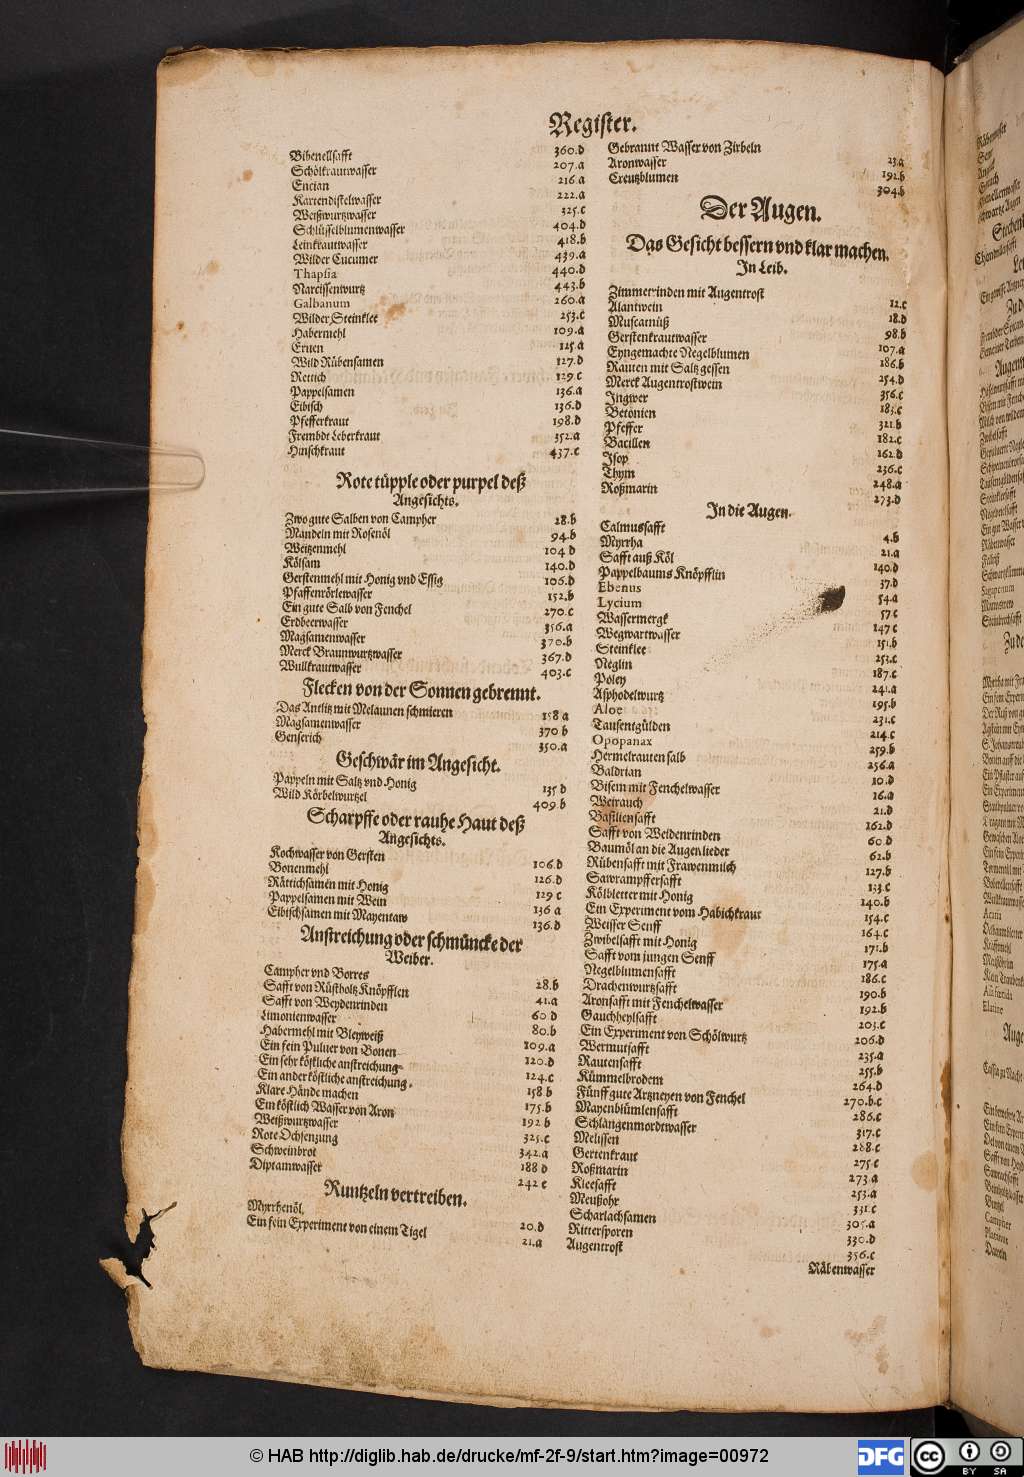 Register.
Bibenellsafft 360.d
Schölkrautwasser 207.a
Encian 216.a
Kartendistelwasser 222.a
Weißwurtzwasser 325.c
Schlüsselblumenwasser 404.d
Leinkrautwasser 418.b
Wilder Cucumer 439.a
Thapsia 440.d
Narcissenwurtz 443.b
Galbanum 260.a
Wilder Steinklee 253.c
Habermehl 109.a
Eruen 125.a
Wild Rübensamen 127.d
Rettich 129.c
Pappelsamen 136.a
Eibisch 136.d
Pfefferkraut 198.d
Frembdt Leberkraut 352.a
Hirschkraut 437.c
Rote tüpple oder purpel deß
Angesichts.
Zwo gute Salben von Campher 28.b
Mandeln mit Rosenöl 94.b
Weitzenmehl 104 d
Kölsam 140.d
Gerstenmehl mit Honig vnd Essig 106.d
Pfaffenrörlewasser 152.b
Ein gute Salb von Fenchel 270.c
Erdbeerwasser 356.a
Magsamenwasser 370.b
Merck Braunwurtzwasser 367.d
Wullkrautwasser 403.c
Flecken von der Sonnen gebrennt.
Das Antlitz mit Melaunen schmieren 158 a
Magsamenwasser 370 b
Genserich 350.a
Geschwär im Angesicht.
Pappeln mit Saltz vnd Honig 135 d
Wild Körbelwurtzel 409.b
Scharpffe oder rauhe Haut deß
Angesichts.
Kochwasser von Gersten 106.d
Bonenmehl 126.d
Rättichsamen mit Honig 129 c
Pappelsamen mit Wein 136 a
Eibischsamen mit Mayentaw 136.d
Anstreichung oder schmüncke der
Weiber.
Campher vnd Borres 28.b
Safft von Rüstholtz Knöpfflen 41.a
Safft von Weydenrinden 60 d
Limonienwasser 80.b
Habermehl mit Bleyweiß 109.a
Ein fein Puluer von Bonen 120.d
Ein sehr köstliche anstreichung 124.c
Ein ander köstliche anstreichung. 158 b
Klare Hände machen 175.b
Ein köstlich Wasser von Aron 192 b
Weißwurtzwasser 325.c
Rote Ochsenzung 342.a
Schweinbrot 188 d
Diptamwasser 242 c
Runtzeln vertreiben.
Myrrhenöl, 20.d
Ein fein Experiment von einem Tigel 21.a
Gebrannt Wasser von Zirbeln 23.a
Aronwasser 192.b
Creutzblumen 304.b
Der Augen.
Das Gesicht bessern vnd klar machen.
In Leib.
Zimmetrinden mit Augentrost 12.c
Alantwein 18.d
Muscatnüß 98.b
Gerstenkrautwasser 107.a
Eyngemachte Negelblumen 186.b
Rauten mit Saltz gessen 254.d
Merck Augentrostwein 356.c
Ingwer 183.c
Betonien 321.b
Pfeffer 182.c
Bacillen 162.d
Isop 236.c
Thym 248.a
Roßmarin 273.d
In die Augen.
Calmussafft 4.b
Myrrha 21.a
Safft auß Köl 140.d
Pappelbaums Knöpfflin 37.d
Ebenus 54.a
Lycium 57 c
Wassermergk 147 c
Wegwartwasser 151.b
Steinklee 253.c
Neglin 187.c
Poley 241.a
Asphodelwurtz 195.b
Aloe 231.c
Tausentgülden 214.c
Opopanax 259.b
Hermelrauten salb 256.a
Baldrian 10.d
Bisem mit Fenchelwasser 16.a
Weirauch 21.d
Basiliensafft 262.d
Safft von Weidenrinden 60 d
Baumöl an die Augenlieder 62.b
Rübensafft mit Frawenmilch 127.b
Sawrampffersafft 133.c
Kölbletter mit Honig 140.b
Ein Experiment vom Habichkraut 154.c
Weisser Senff 164.c
Zwibelsafft mit Honig 171.b
Safft vom jungen Senff 175.a
Negelblumensafft 186.c
Drachenwurtzsafft 190.b
Aronsafft mit Fenchelwasser 192.b
Gauchheylsafft 203.c
Ein Experiment von Schölwurtz 206.d
Wermutsafft 235.a
Rautensafft 255.b
Kümmelbrodem 264.d
Fünff gute Artzneyen von Fenchel 270.b.c
Mayenblümlensafft 286.c
Schlangenmordtwasser 317.c
Melissen 288.c
Gertenkraut 275.c
Roßmarin 273.a
Kleesafft 253.a
Meußohr 331.c
Scharlachsamen 305.a
Rittersporen 330.d
Augentrost 356.c
Räbenwasser
© HAB http://diglib.hab.de/drucke/mf-2f-9/start.htm?image=00972
DFG
cc BY SA